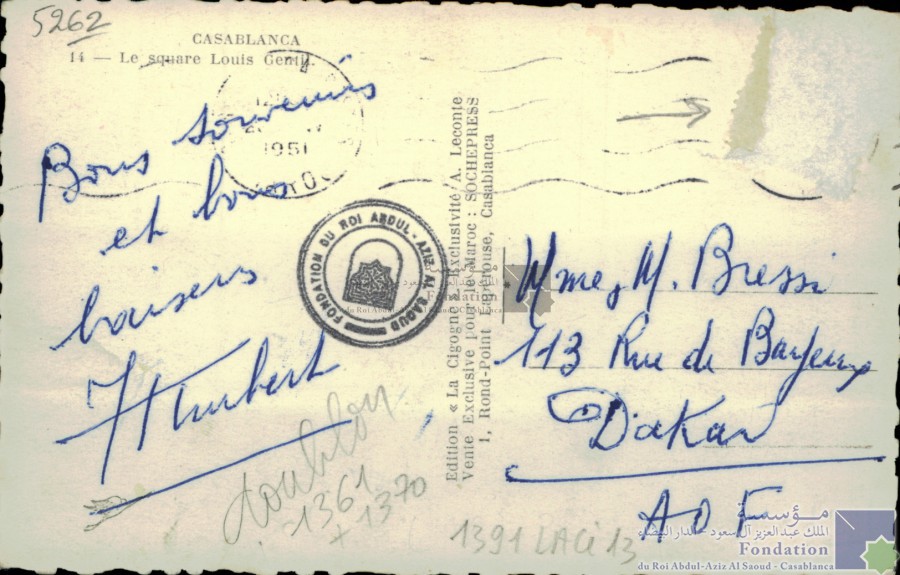 5262
CASABLANCA
14 — Le square Louis Gentil.
1951
Bons souvenirs
et bons
baisers
Humbert
FONDATION DU ROI ABDUL-AZIZ AL SAOUD
Edition « La Cigogne » Exclusivité A. Leconte
Vente Exclusive pour le Maroc : SOCHEPRESS
1, Rond-Point Lapérouse, Casablanca
Mme, M. Bressi
113 Rue de Bayeux
Dakar
AOF
doublon
1361
+ 1370
1391 LACi 13
مؤسسة
الملك عبد العزيز آل سعود - الدار البيضاء
Fondation
du Roi Abdul-Aziz Al Saoud - Casablanca